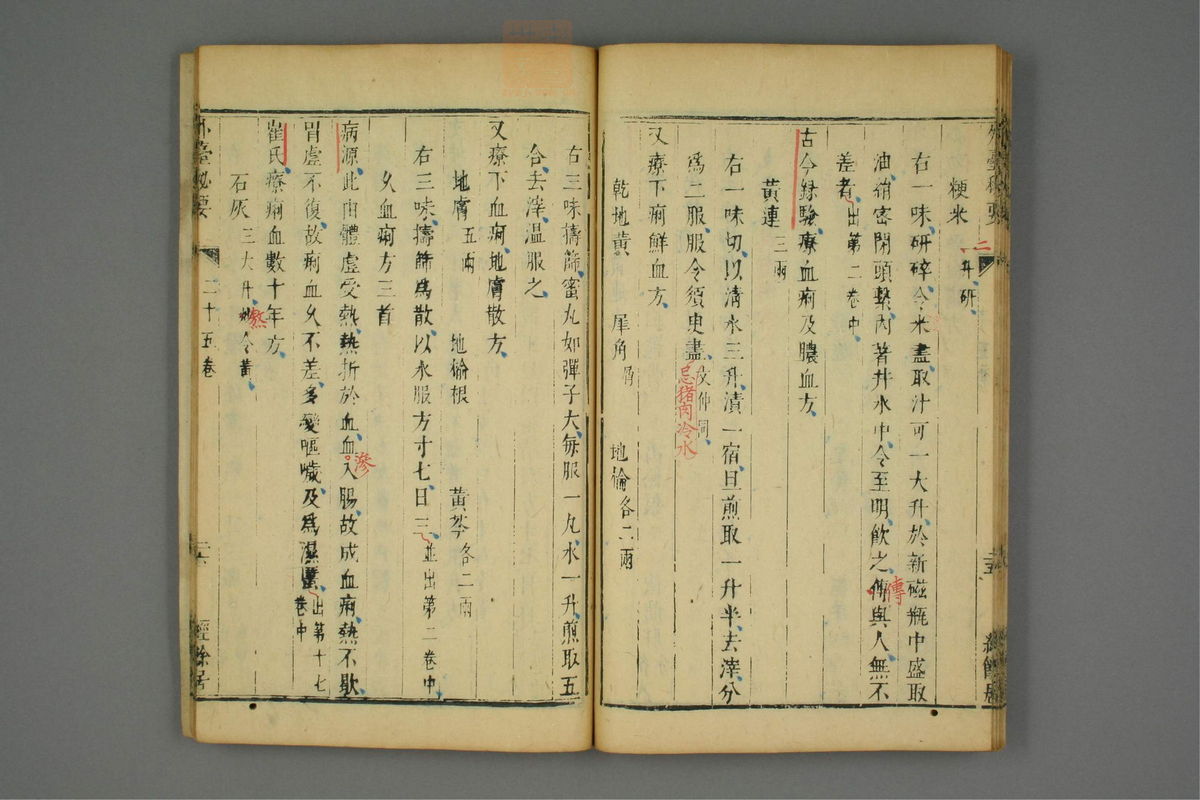 粳米一升研
二
右一味研碎令米盡取汁可一大升於新磁瓶中盛取
油絹密閉頭繫內著井水中令至明飲之傅與人無不
傳
差者出第二卷中
古今錄驗療血痢及膿血方
黃連三兩
右一味切以清水三升漬一宿旦煎取一升半去滓分
爲二服服令須臾盡文仲同
忌猪肉冷水
又療下痢鮮血方
乾地黃 犀角屑 地榆各二兩
右三味擣篩蜜丸如彈子大每服一丸水一升煎取五
合去滓溫服之
又療下血痢地膚散方
地膚五兩 地榆根 黃芩各二兩
右三味擣篩爲散以水服方寸匕日三並出第二卷中
久血痢方三首
病源此由體虛受熱熱折於血血入腸故成血痢熱不歇
滲
胃虛不復故痢血久不差多變嘔噦及爲濕䘌出第十七卷中
崔氏療痢血數十年方
石灰三大升 令黃
熬
外臺秘要 二十五卷 二六 經餘居